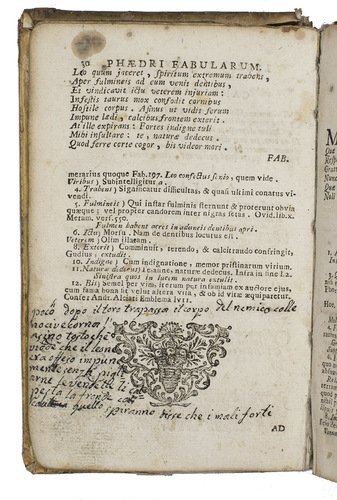 30 PHÆDRI FABULARUM.
Leo quum jaceret, spiritum extremum trahens,
Aper fulmineis ad eum venit dentibus,
Et vindicavit ictu veterem injuriam:
Infestis taurus mox confodit cornibus
Hostile corpus. Asinus ut vidit ferum
Impune lædi, calcibus frontem exterit.
At ille expirans: Fortes indigne tuli
Mihi insultare: te, naturæ dedecus,
Quod ferre certe cogor, bis videor mori.
FAB.
merarius quoque Fab. 197. Leo confectus senio, quem vide.
Viribus) Subintelligitur a.
4. Trahens) Significatur difficultas, & quasi ultimi conatus vi-
vendi.
5. Fulmineis) Qui instar fulminis sternunt & proterunt obvia
quæque; vel propter candorem inter nigras setas. Ovid. lib. x.
Metam. vers. 550.
Fulmen habent acres in aduncis dentibus apri.
6. Ictu) Morsu. Nam de dentibus locutus est.
Veterem) Olim illatam.
8. Exterit) Comminuit, terendo, & calcitrando confringit,
Gudius, extudit.
10. Indigne) Cum indignatione, memor pristinarum virium.
11. Naturæ dedecus) Te asine, naturæ dedecus. Infra in fine l. 2.
Sinistra quos in lucem natura extulit.
12. Bis) Semel per vim, iterum per infamiam ex auctore ejus,
cum fama bona sit velut altera vita, & ob id vitæ æquiparetur.
Confer Andr. Alciati Emblema lvii.
poco dopo il toro trapassa il corpo del nemico colle
nocive corna l'
asino tosto che
vidde che il leone
era ofeso impune
mente
arne le vendette
pesta la fronte
quello spiranno disse che i mali forti
AD